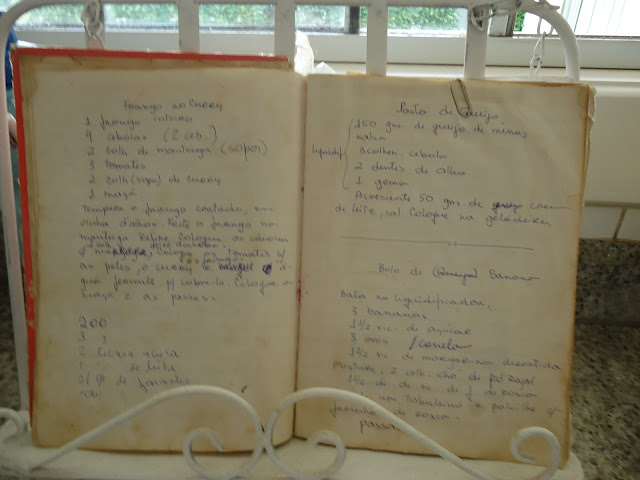 Frango no CURRY
1 frango inteiro
4 cebolas (2 cb.)
2 colh de manteiga (sopa)
3 tomates
2 colh (sopa) de curry
1 maçã
Tempere o frango cortado, em
vinha d'alhos. Frite o frango na
manteiga. Refine. Coloque as cebolas
Coloque os tomates s/
as peles, o curry e a á-
gua fervente p/ cobri-lo. Coloque a
maçã e as passas.
200
3
2
1 de leite
Pasta de Queijo
150 grs. de queijo de minas
salsa
liquidif. 3 colher. cebola
2 dentes de alho
1 gema
Acrescente 50 grs. de creme
de leite, sal. Coloque na geladeira
Bolo de Banana
Bata no liquidificador:
3 bananas
1 1/2 xic. de açúcar
3 ovos / canela
1/2 xic. de margarina derretida
Misture, 2 colh. chá de pó royal
1 1/2 de f. de rosca
um tabuleiro e polvilhe c/
farinha de rosca.
passas